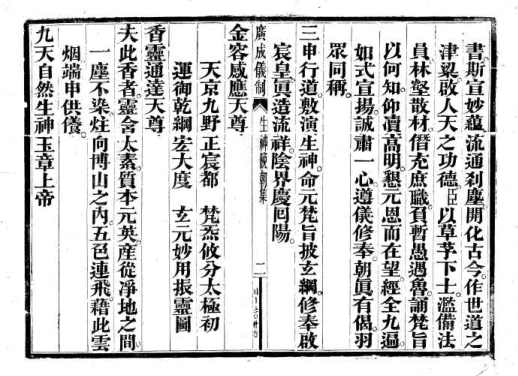 書斯宣妙蘊流通刹塵開化古今作世道之
津梁啟人天之功德臣以草芥下士濫備法
員林壑散材僭充庶職質暫愚過魯誦梵旨
以何知仰瀆高明懇元恩而在望經全九遍
如式宣揚誠肅一心遵儀修奉朝真有偈羽
眾同稱
三申行道敷演生神命元梵旨披玄綱修奉啟
宸皇真造流祥陰界慶囘陽
廣成儀制
生神陵朝集
二
金容感應天尊
天京九野正宸都 梵炁攸分太極初
運御乾綱宏大度 玄元妙用振靈圖
香靈通達天尊
夫此香者靈含太素質本元英產從淨地之間
一塵不染炷向博山之內五色連飛藉此雲
烟端申供儀
九天自然生神玉章上帝